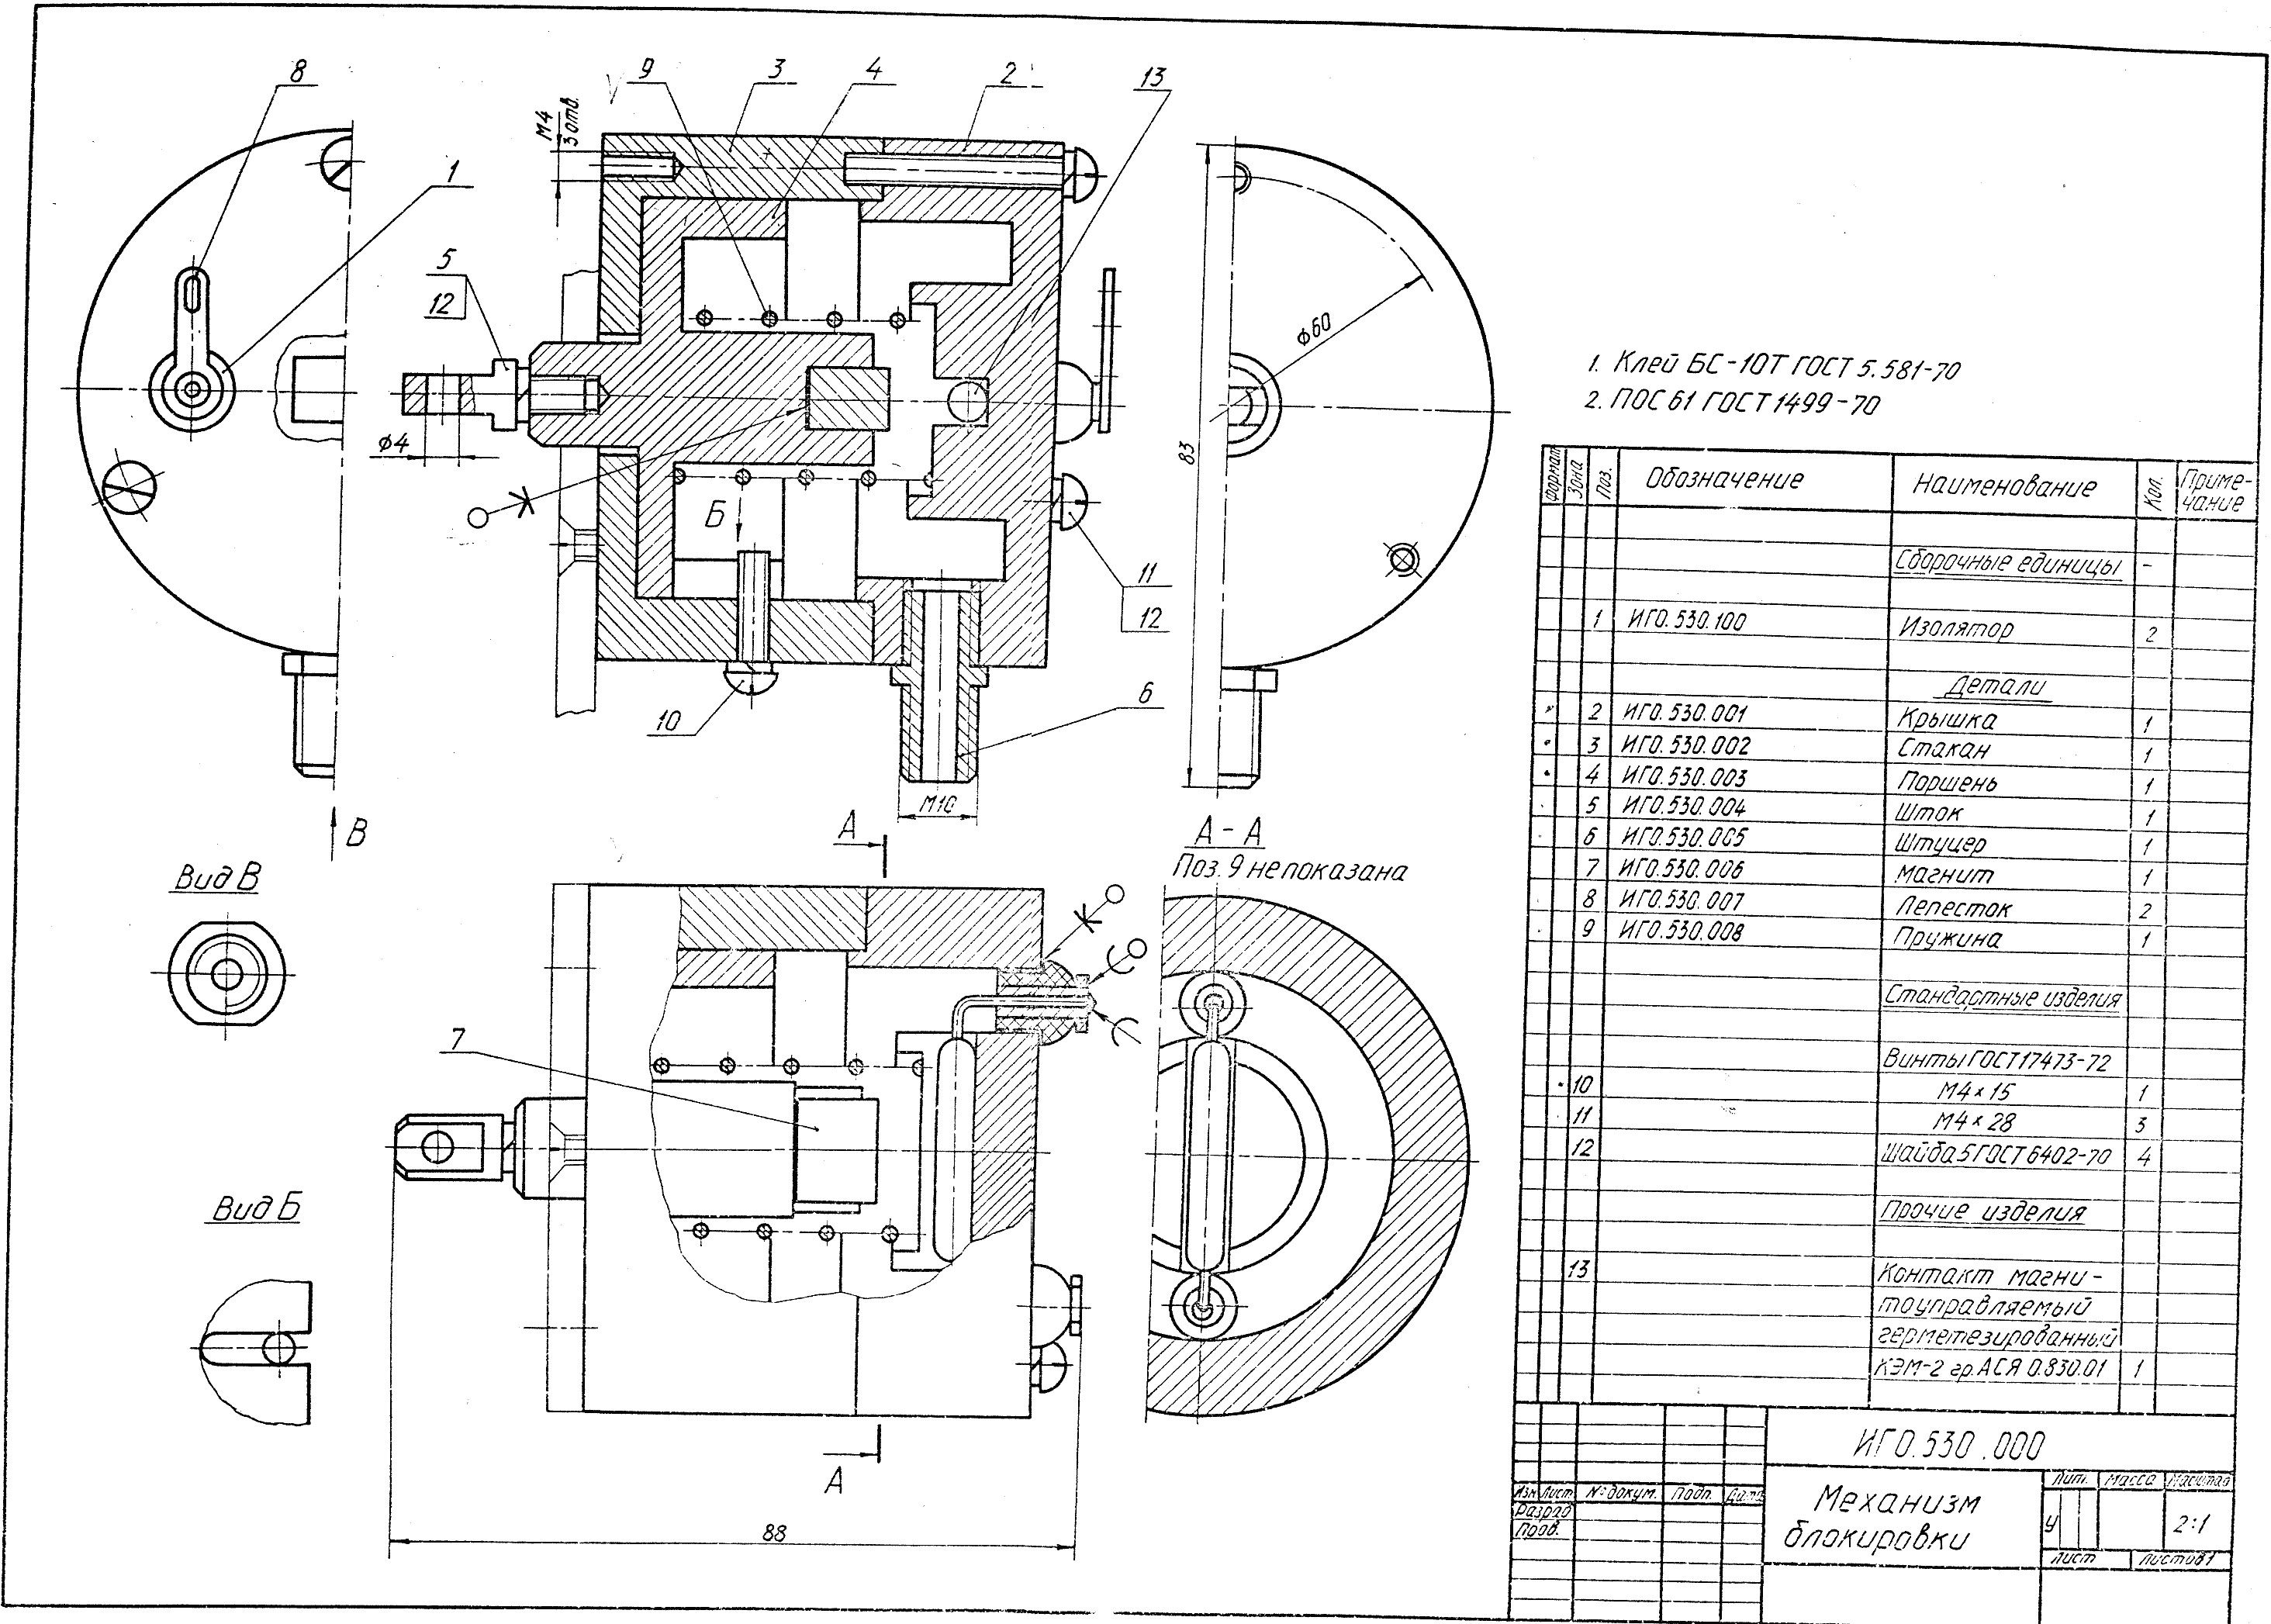 8
9
3
4
2
13
М4
3 отв.
1
5
12
φ4
Б
10
11
12
6
М10
φ60
83
1. Клей БС-10Т ГОСТ 5.581-70
2. ПОС 61 ГОСТ 1499-70
В
Вид В
А
А-А
Поз. 9 не показана
7
Вид Б
А
88
Формат Зона Поз. Обозначение Наименование Кол. Приме-
чание
Сборочные единицы -
1 ИГО.530.100 Изолятор 2
Детали
2 ИГО.530.001 Крышка 1
3 ИГО.530.002 Стакан 1
4 ИГО.530.003 Поршень 1
5 ИГО.530.004 Шток 1
6 ИГО.530.005 Штуцер 1
7 ИГО.530.006 Магнит 1
8 ИГО.530.007 Лепесток 2
9 ИГО.530.008 Пружина 1
Стандартные изделия
Винты ГОСТ 17473-72
10 М4×15 1
11 М4×28 3
12 Шайба 5 ГОСТ 6402-70 4
Прочие изделия
13 Контакт магни-
тоуправляемый
герметезированный
КЭМ-2 гр. АСЯ 0.830.01 1
ИГО.530.000
Изм Лист № докум. Подп. Дата
Разраб
Пров.
Механизм
блокировки
Лит. Масса Масштаб
У 2:1
Лист Листов 1